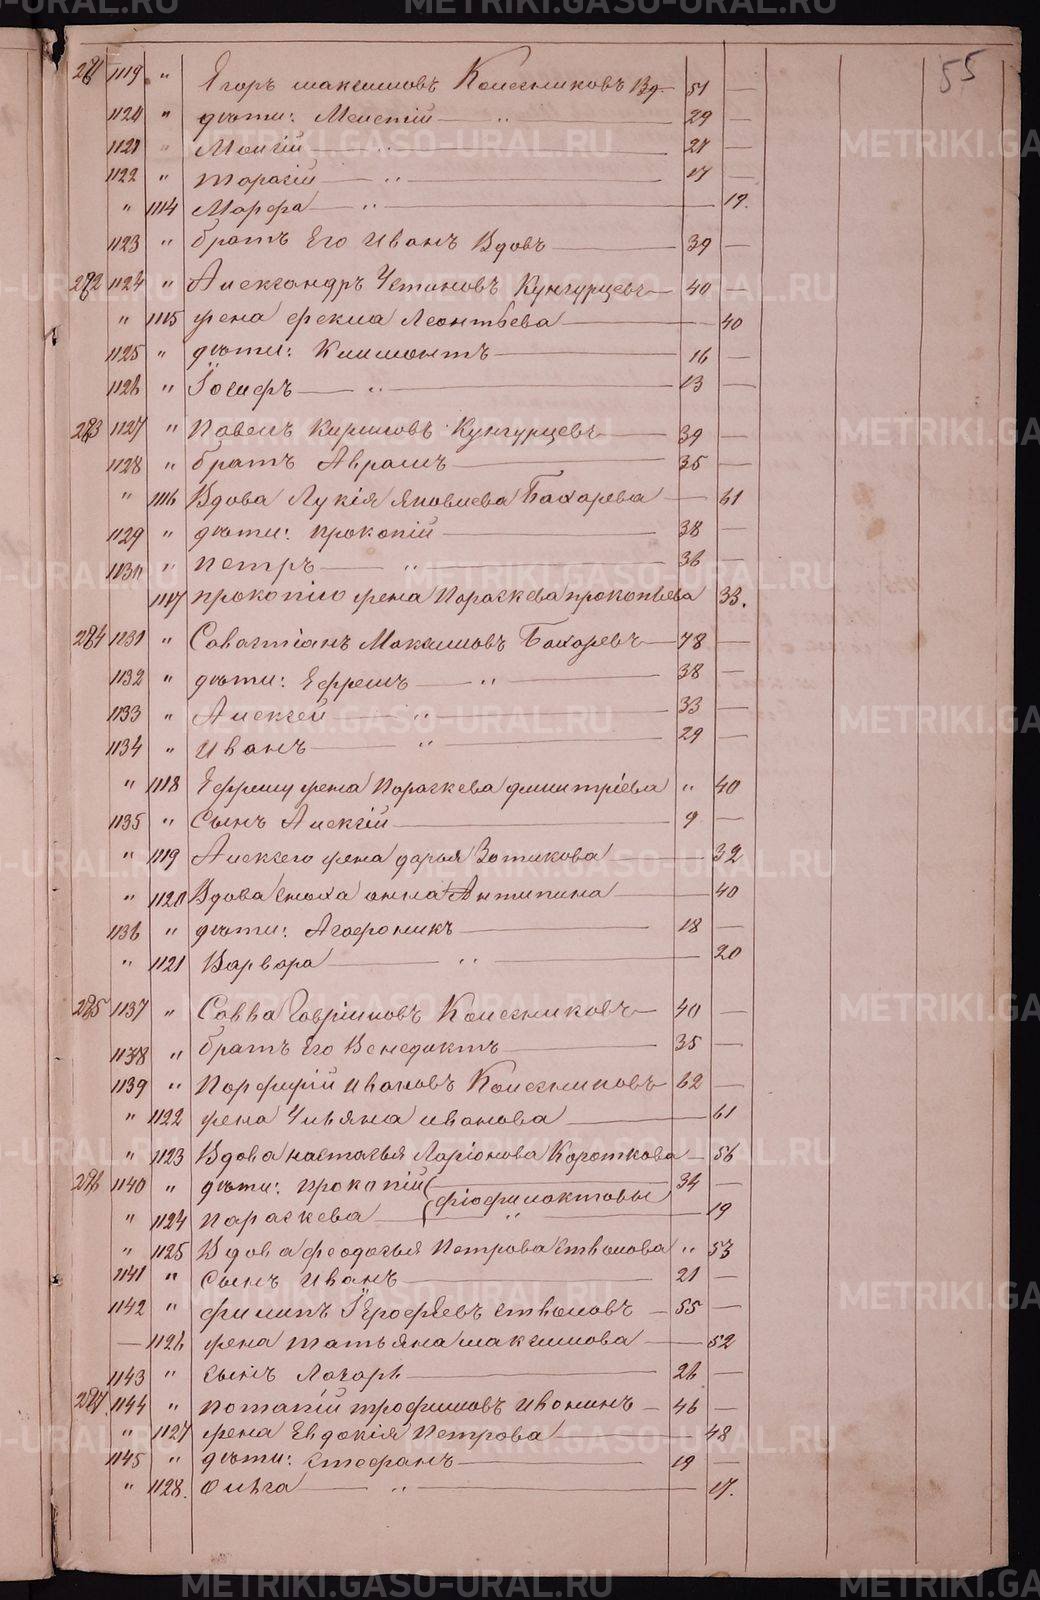 55
281 1119 " Егоръ Максимовъ Колесниковъ Вд. 51 —
1120 " дѣти: Мелетій — " — 29 —
1121 " Моисій — " — 21 —
1122 " Тарасій — " — 17 —
" 1114 Марфа — " — 19.
1123 " братъ Его Иванъ Вдовъ — 39 —
282 1124 " Александръ Устиновъ Кунгурцевъ — 40 —
" 1115 жена Фекла Леонтьева — 40
1125 " дѣти: Климонтъ — 16 —
1126 " Іосифъ — " — 13 —
283 1127 " Павелъ Кириловъ Кунгурцевъ — 39 —
1128 " братъ Аврамъ — 35 —
" 1116 Вдова Лукія Яковлева Бахарева — 61
1129 " дѣти: Прокопій — 38 —
1130 " Петръ — " — 36 —
1117 Прокопію жена Параскева Прокопьева 33.
284 1131 " Савастіанъ Максимовъ Бахаревъ — 78 —
1132 " дѣти: Ефремъ — " — 38 —
1133 " Алексей — " — 33 —
1134 " Иванъ — " — 29 —
" 1118 Ефрему жена Параскева Дмитріева " 40
1135 " Сынъ Алексій — 9 —
" 1119 Алексею жена Дарья Зотикова — 32
" 1120 Вдова сноха Анна Антипина — 40
1136 " дѣти: Агафоникъ — 18 —
" 1121 Варвара — " — 20
285 1137 " Савва Гавриловъ Колесниковъ — 40 —
1138 " братъ Его Венедиктъ — 35 —
1139 " Парфирій Ивановъ Колесниковъ 62 —
" 1122 жена Ульяна Иванова — 61
" 1123 Вдова Настасья Ларіонова Короткова — 56
286 1140 " дѣти: Прокопій — 34 —
Фіофилактовы
" 1124 Параскева — " — 19
" 1125 Вдова Феодосья Петрова Стволова " 53
1141 " Сынъ Иванъ — 21 —
1142 " Филипъ Іерофѣевъ Стволовъ — 55 —
— 1126 жена Татьяна Максимова — 52
1143 " сынъ Лазарь — 26 —
287 1144 " Потапій Трофимовъ Ивонинъ — 46 —
" 1127 жена Евдокія Петрова — 48
1145 " дѣти: Стефанъ — 19 —
" 1128. Ольга — " — 17.
METRIKI.GASO-URAL.RU